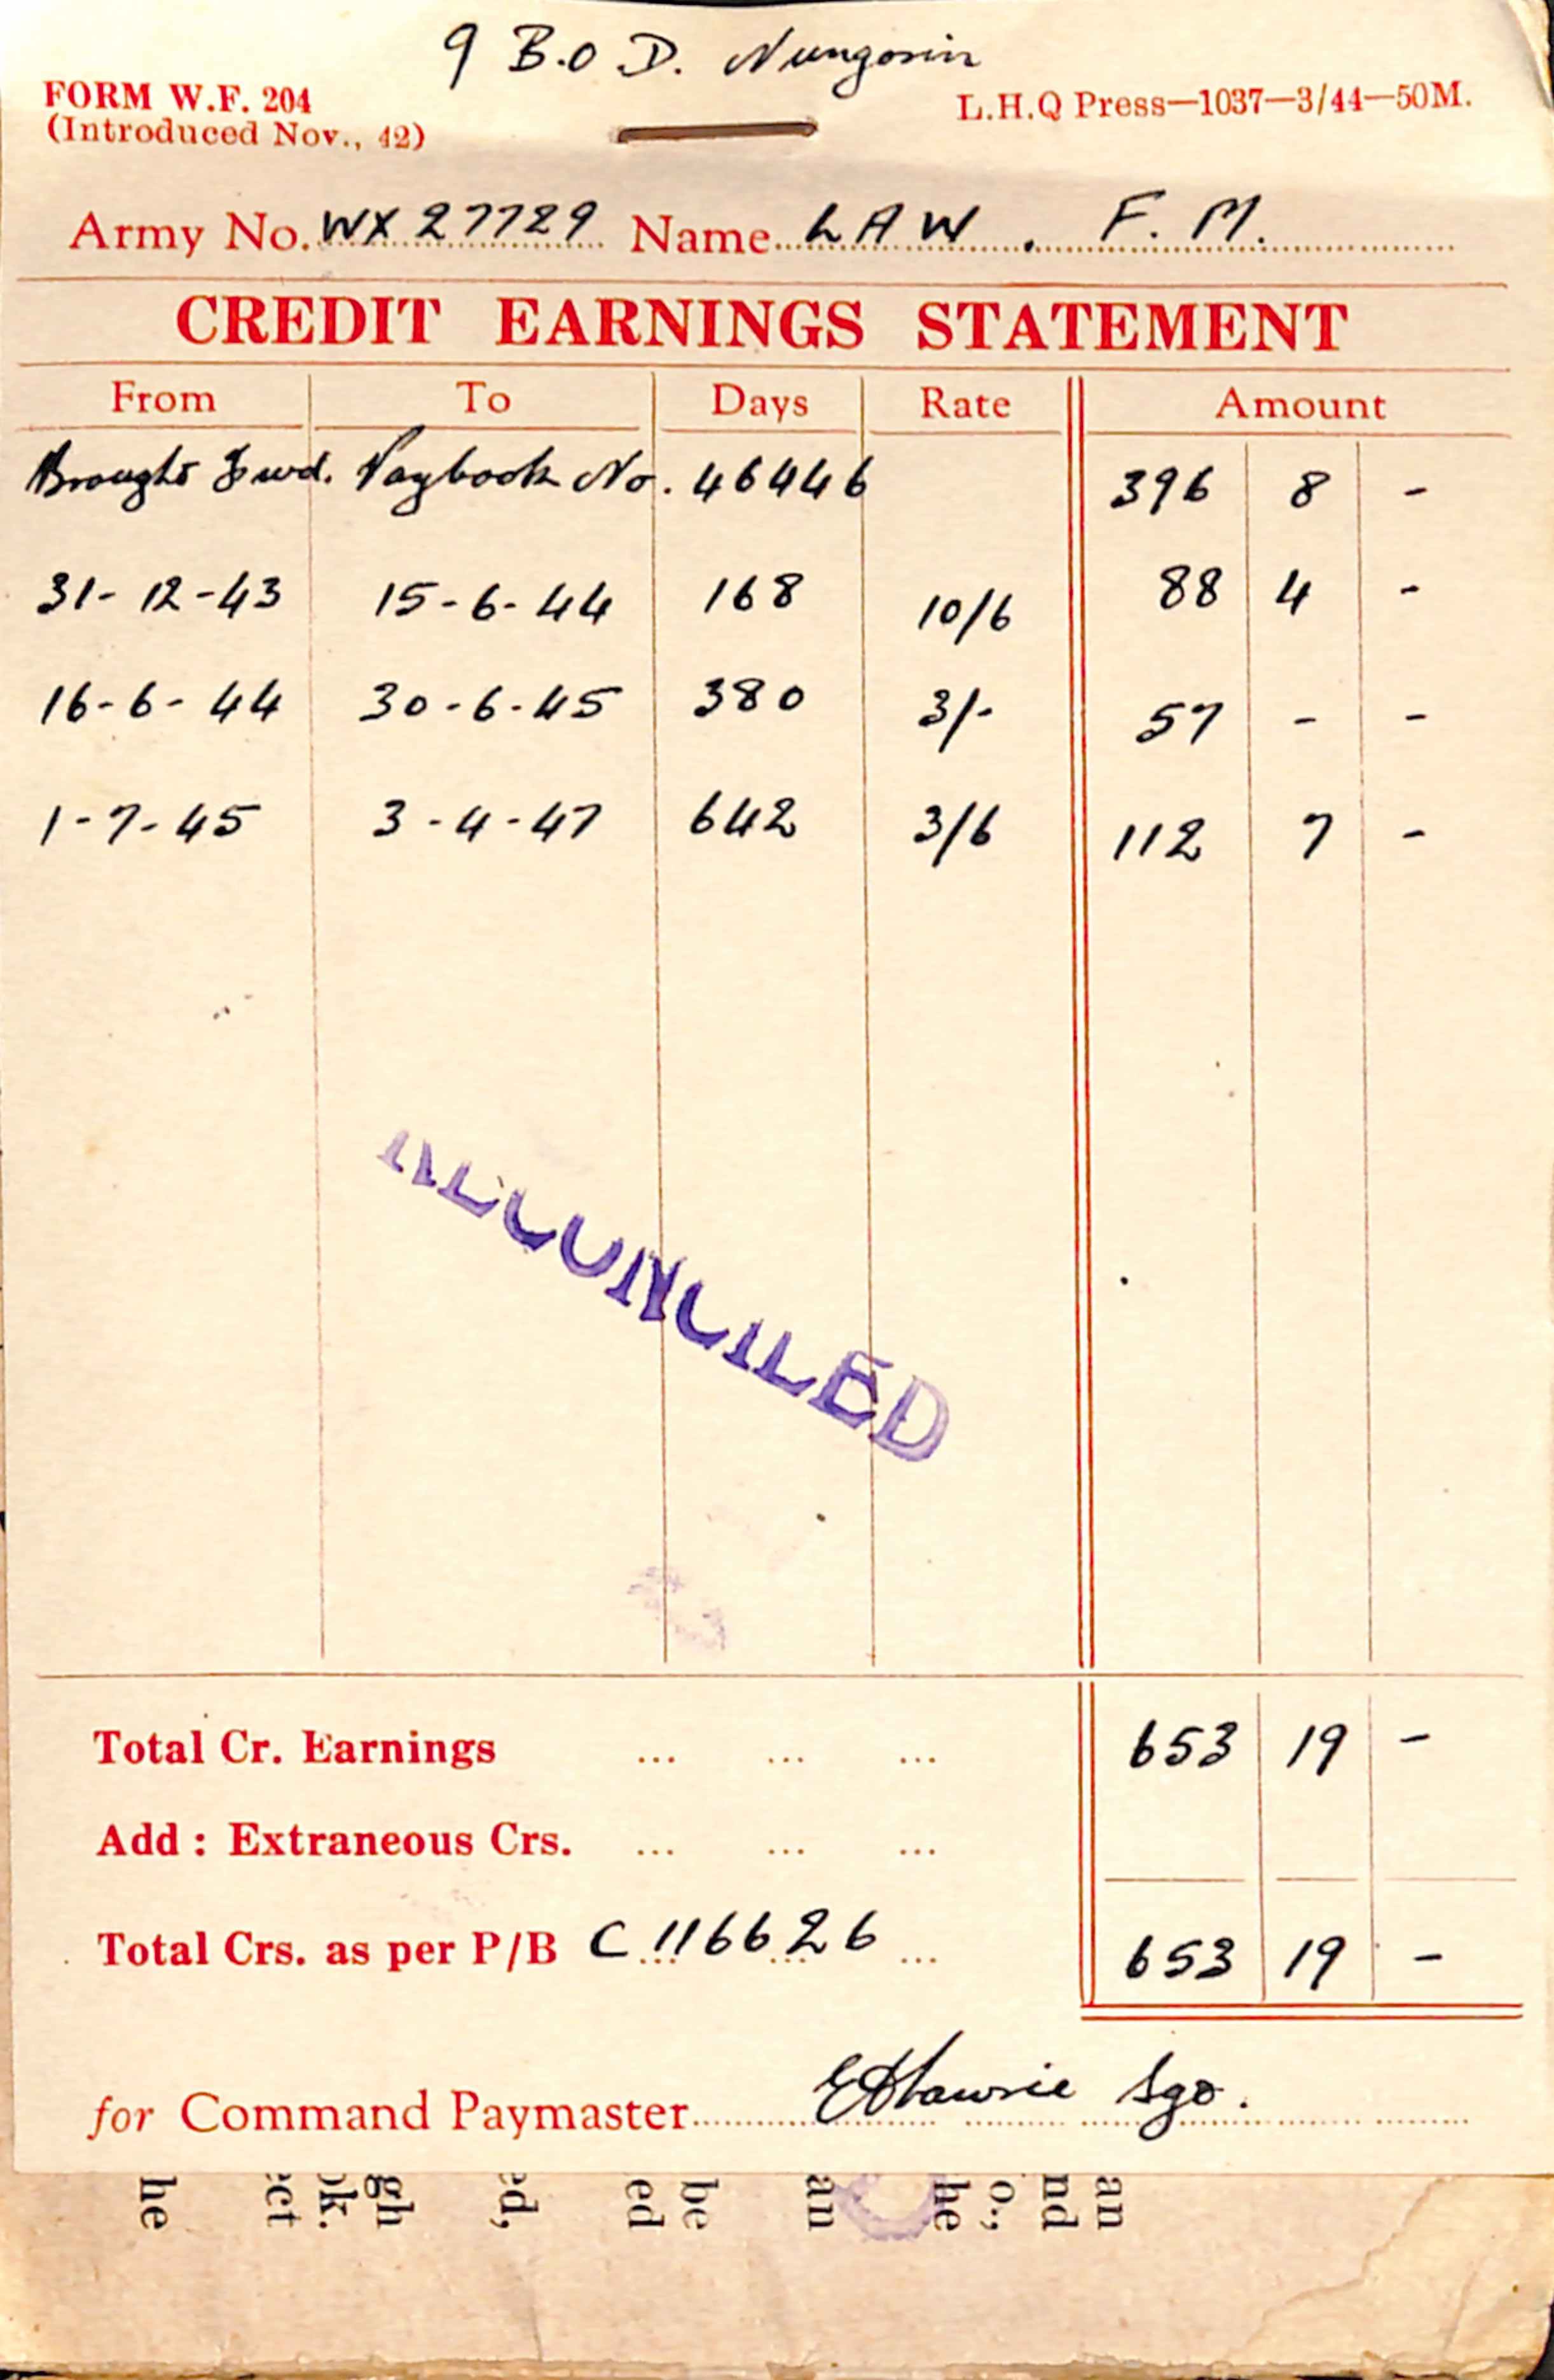 9 B.O.D. Nungarin
FORM W.F. 204
L.H.Q Press—1037—3/44—50M.
(Introduced Nov., 42)
Army No. WX 27729 Name LAW. F. M.
CREDIT EARNINGS STATEMENT
From To Days Rate Amount
Brought Fwd. Paybook No. 46446 396 8 -
31-12-43 15-6-44 168 10/6 88 4 -
16-6-44 30-6-45 380 3/- 57 - -
1-7-45 3-4-47 642 3/6 112 7 -
RECONCILED
Total Cr. Earnings ... ... ... 653 19 -
Add: Extraneous Crs. ... ... ...
Total Crs. as per P/B C 116626 ... 653 19 -
for Command Paymaster Sgt.
an
nd
o.,
he
an
be
ed
ed,
gh
ok.
ect
he